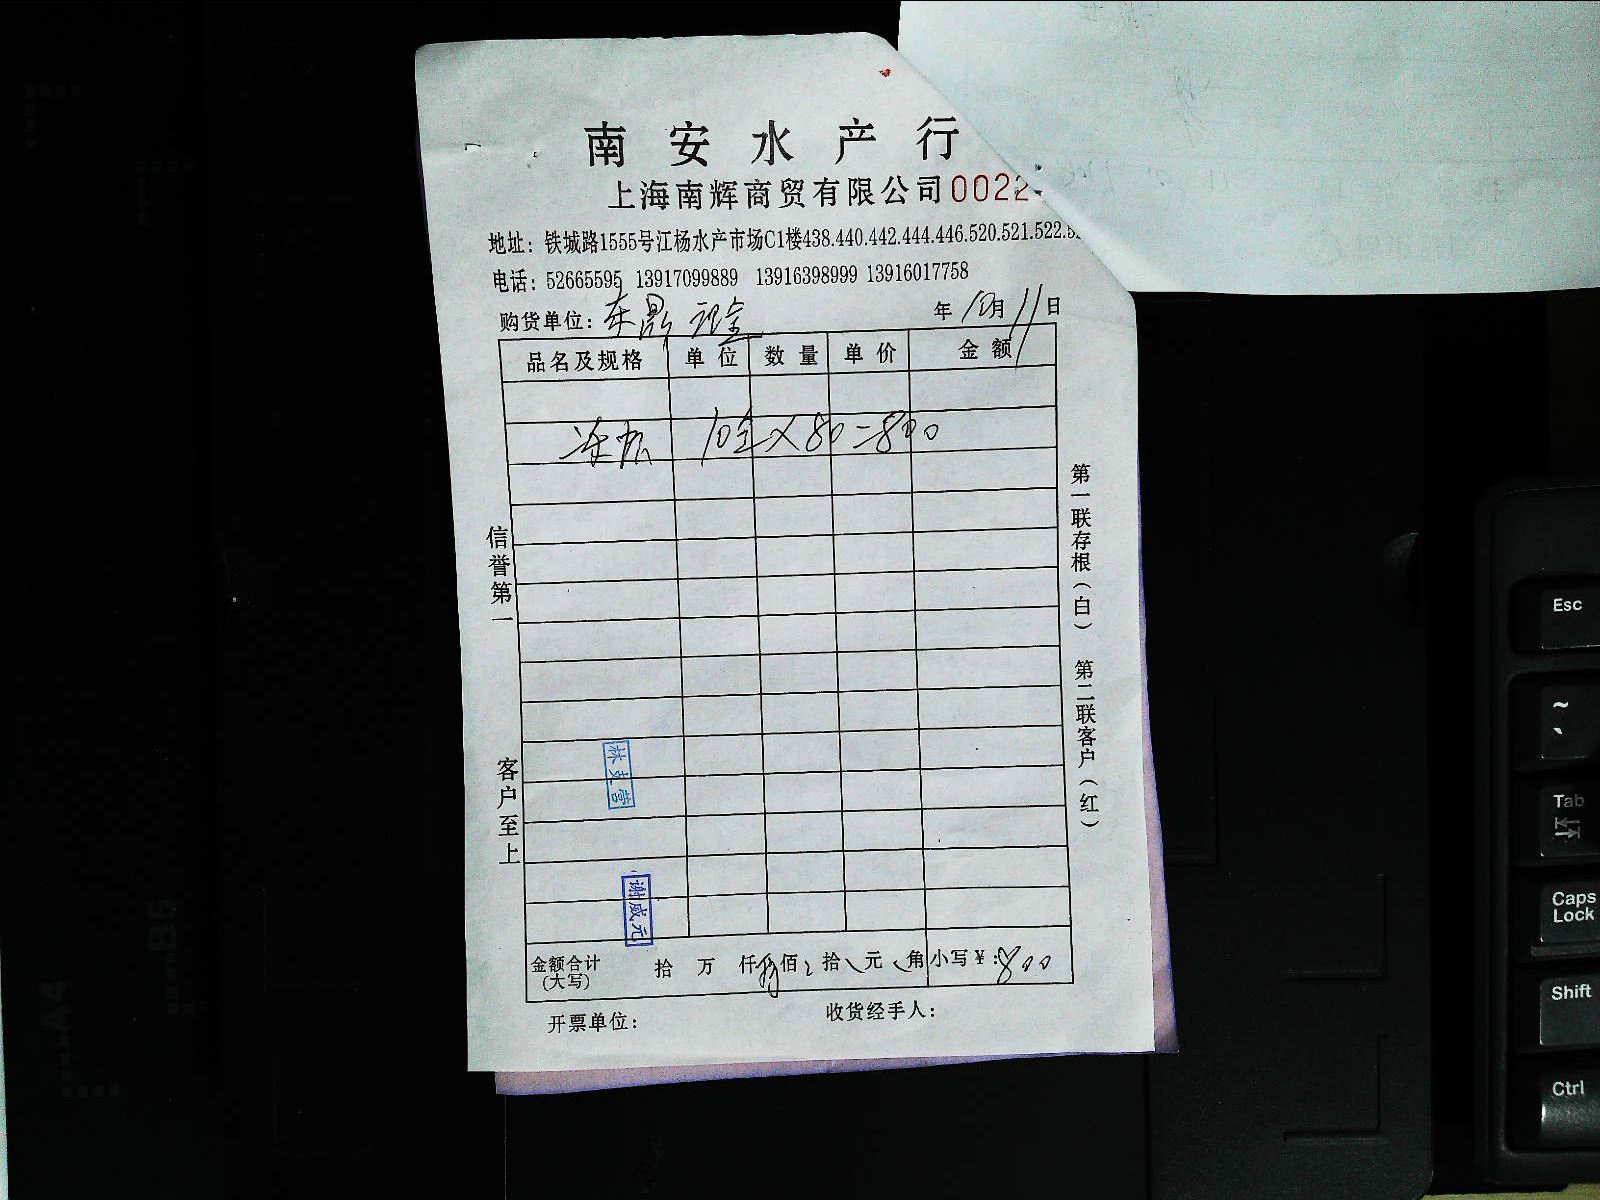 南安水产行
上海南辉商贸有限公司 0022
地址：铁城路1555号江杨水产市场C1楼438.440.442.444.446.520.521.522.5
电话：52665595 13917099889 13916398999 13916017758
购货单位：东鼎 年10月11日
品名及规格 单位 数量 单价 金额
冻 10 × 80 = 800
信誉第一
客户至上
第一联存根（白） 第二联客户（红）
谢威元
金额合计 拾 万 仟 佰 拾 元 角 小写￥：800
（大写）
开票单位： 收货经手人：
Esc
~
`
Tab
Caps
Lock
Shift
Ctrl
A4
B5